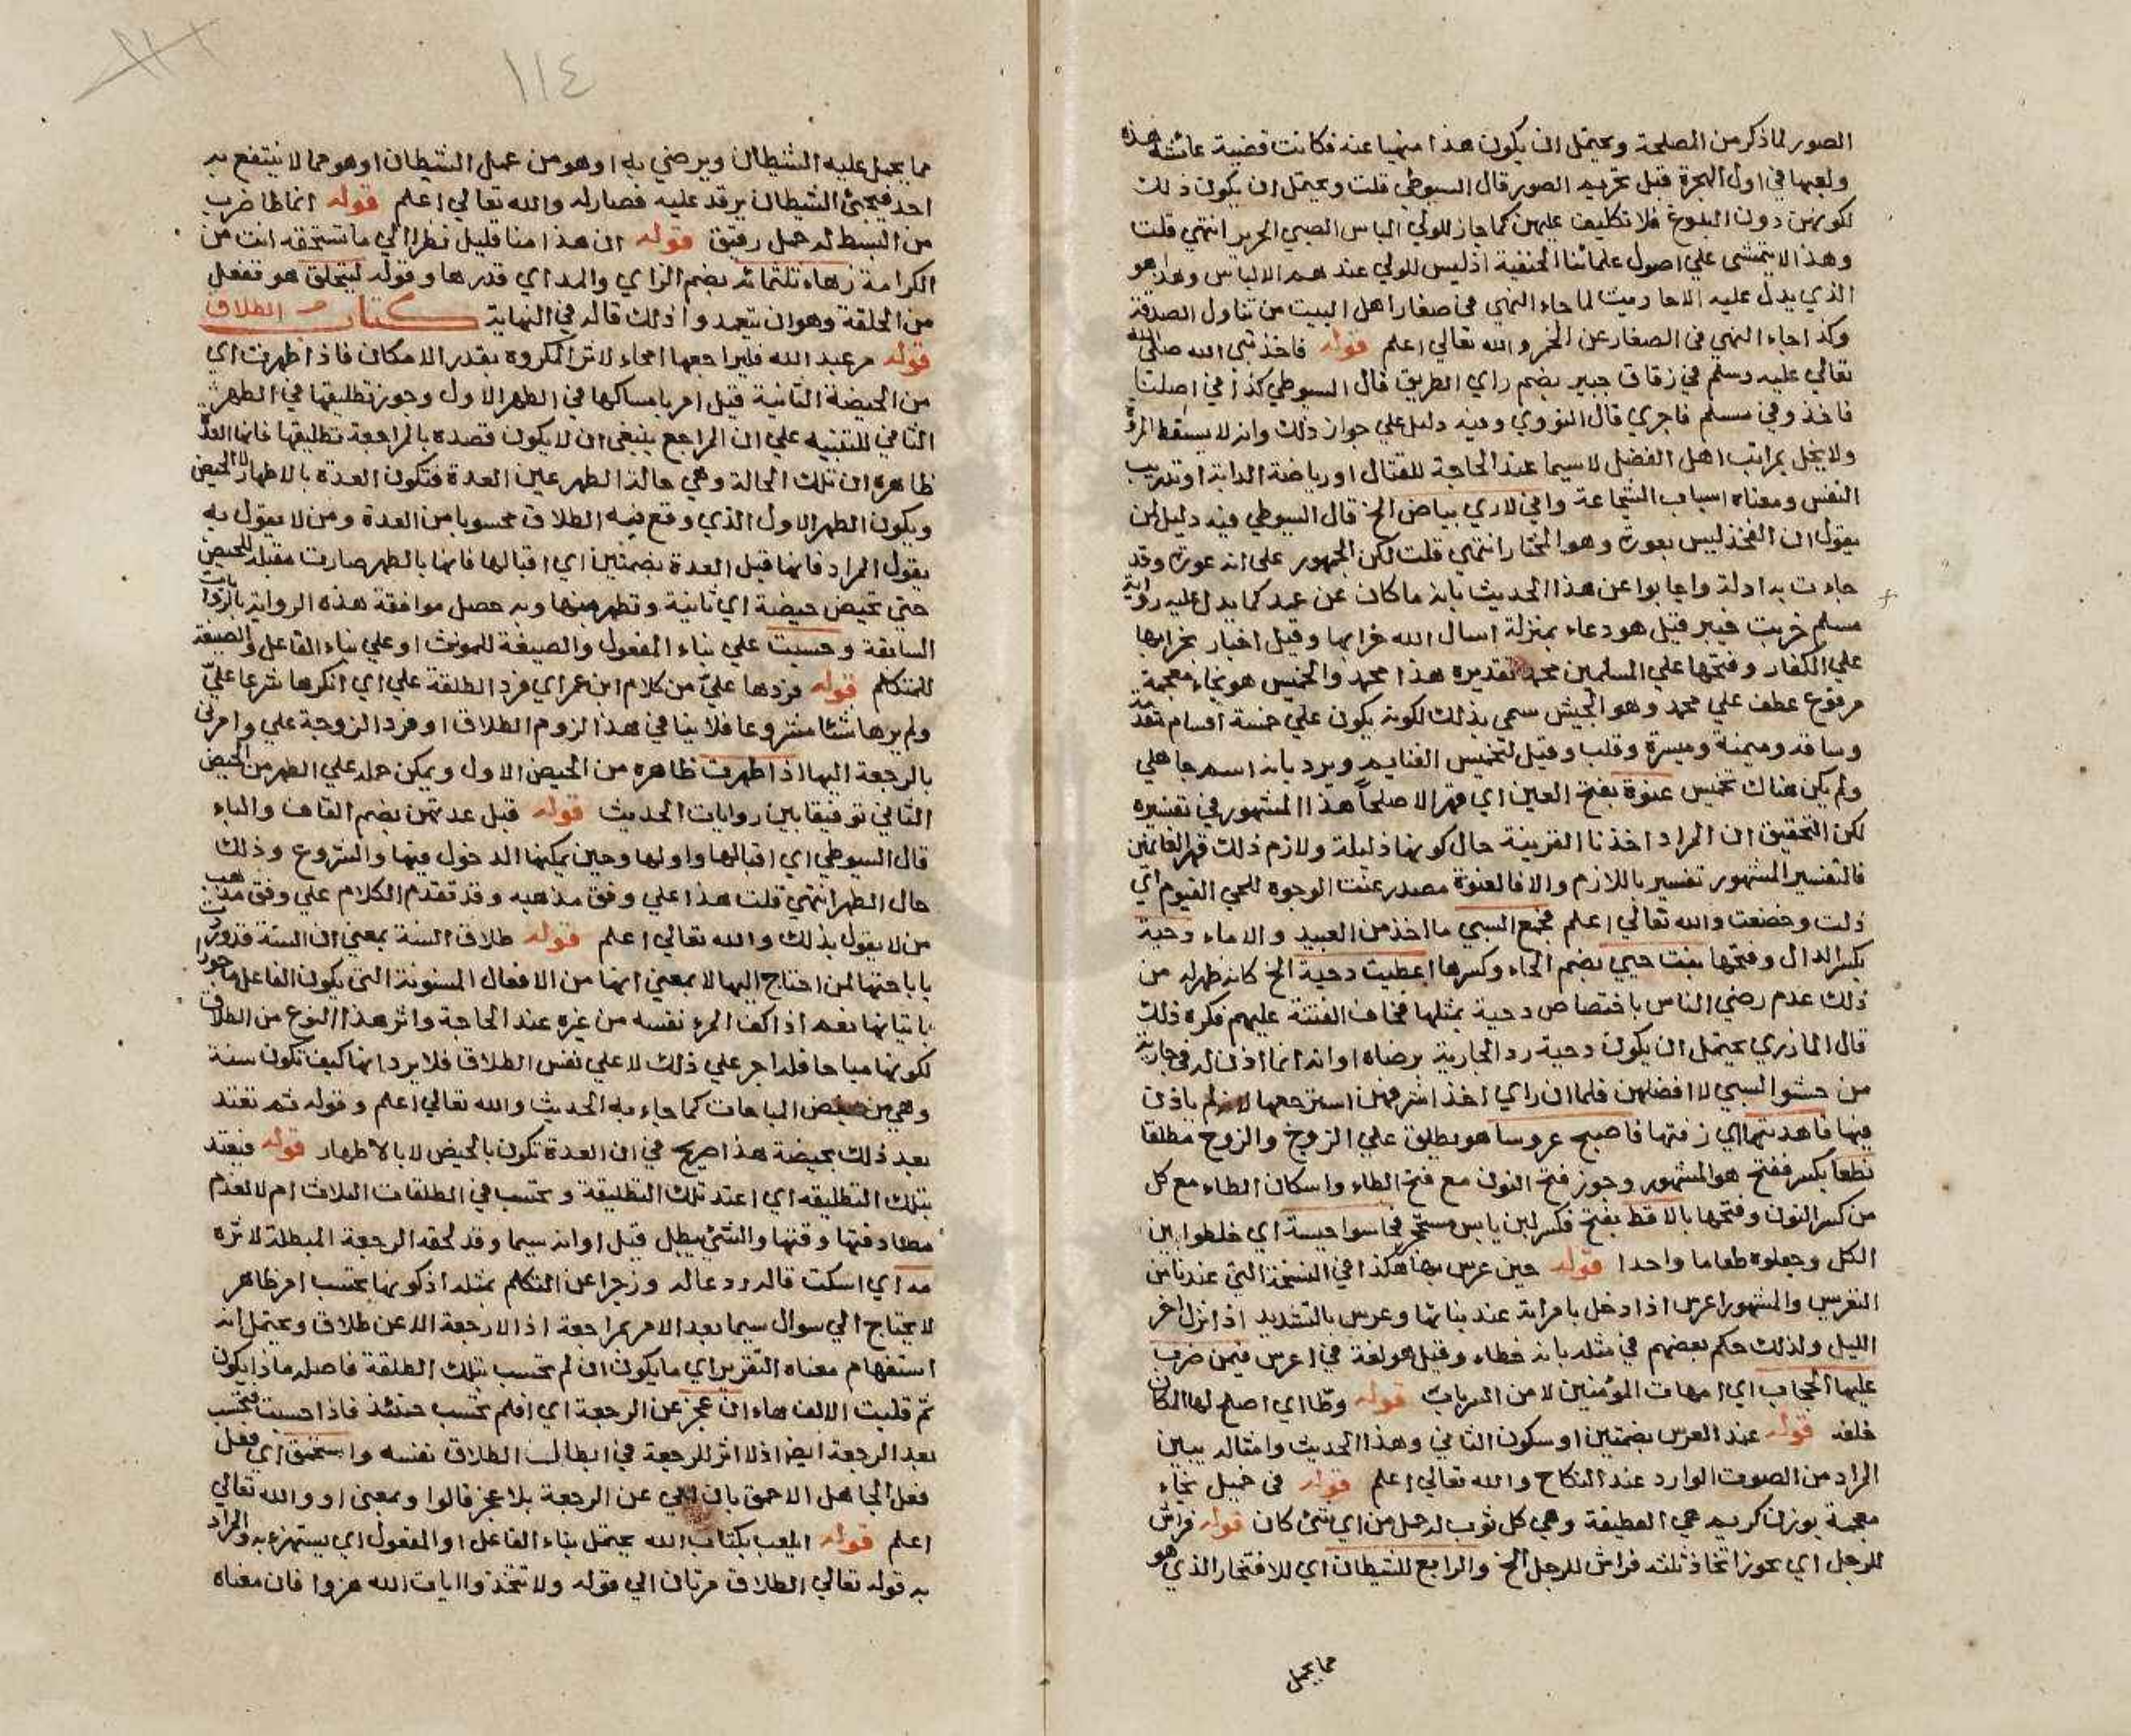 الصور لما ذكر من المصلحة ويحتمل ان يكون هذا منهيا عنه فكانت قضية عائشة هذه
ولعبها في اول الهجرة قبل تحريم الصور قال السيوطي قلت ويحتمل ان يكون ذلك
لكونهن دون البلوغ فلا تكليف عليهن كما جاز للولي الباس الصبي الحرير انتهي قلت
وهذا لا يتمشى علي اصول علمائنا الحنفية اذ ليس للولي عندهم الالباس وهذا هو
الذي يدل عليه الاحاديث لما جاء النهي في صغار اهل البيت من تناول الصدقة
وكذا جاء النهي في الصغار عن الخمر والله تعالي اعلم قوله فاخذ نبي الله صلى الله
تعالي عليه وسلم في زقاق خيبر بضم زاي الطريق قال السيوطي كذا في اصلنا
فاخذ وفي مسلم فاجري قال النووي وفيه دليل علي جواز ذلك وانه لا يسقط المروة
ولا يخل بمراتب اهل الفضل لاسيما عند الحاجة للقتال او رياضة الدابة او تدريب
النفس ومعناه اسباب الشجاعة واني لاري بياض الخ قال السيوطي فيه دليل لمن
يقول ان الفخذ ليس بعورة وهو المختار انتهي قلت لكن الجمهور على انه عورة وقد
جاءت به ادلة واجابوا عن هذا الحديث بانه ما كان عن عمد كما يدل عليه رواية
مسلم خربت خيبر قيل هو دعاء بمنزلة اسال الله خرابها وقيل اخبار بخرابها
علي الكفار وفتحها علي المسلمين محمد تقديره هذا محمد والخميس هو بخاء معجمة
مرفوع عطف علي محمد وهو الجيش سمي بذلك لكونه يكون علي خمسة اقسام مقدمة
وساقة وميمنة وميسرة وقلب وقيل لتخميس الغنايم ويرد بانه اسم جاهلي
ولم يكن هناك تخميس عنوة بفتح العين اي قهرا لا صلحا هذا المشهور في تفسيره
لكن التحقيق ان المراد اخذنا القرينة حال كونها ذليلة ولازم ذلك قهر الغانمين
فالتفسير المشهور تفسير باللازم والا فالعنوة مصدر عنت الوجوه للحي القيوم اي
ذلت وخضعت والله تعالي اعلم فجمع السبي ما اخذ من العبيد والاماء دحية
بكسر الدال وفتحها بنت حيي بضم الحاء وكسرها اعطيت دحية الخ كانه ظهر له من
ذلك عدم رضي الناس باختصاص دحية بمثلها فخاف الفتنة عليهم فكره ذلك
قال المازري يحتمل ان يكون دحية رد الجارية برضاه او انه انما اذن له في جارية
من حشو السبي لا افضلهن فلما ان راي اخذ اشرفهن استرجعها لانه لم ياذن
فيها فاهدتها اي زفتها فاصبح عروسا هو يطلق علي الزوج والزوج مطلقا
نطعا بكسر ففتح هو المشهور وجوز فتح النون مع فتح الطاء واسكان الطاء مع كل
من كسر النون وفتحها بالاقط بفتح فكسر لبن يابس مستحجر فحاسوا حيسة اي خلطوا بين
الكل وجعلوه طعاما واحدا قوله حين عرس بها هكذا في النسخة التي عندنا من
التعريس والمشهور اعرس اذا دخل بامراته عند بنائها وعرس بالتشديد اذا نزل اخر
الليل ولذلك حكم بعضهم في مثله بانه خطاء وقيل هو لغة في اعرس فيمن ضرب
عليها الحجاب اي امهات المؤمنين لا من السريات قوله وطا اي اصلح لها المكان
خلفه قوله عند العرس بضمتين او سكون الثاني وهذا الحديث وامثاله يبين
المراد من الصوت الوارد عند النكاح والله تعالي اعلم قوله في خميل بخاء
معجمة بوزن كريم هي القطيفة وهي كل ثوب له خمل من اي شئ كان قوله فراش
للرجل اي يجوز اتخاذ ثلثه فراش للرجل الخ والرابع للشيطان اي للافتخار الذي هو
مما يحمل
١١٤
مما يحمل عليه الشيطان ويرضي به او هو من عمل الشيطان او هو مما لا ينتفع به
احد فيجئ الشيطان يرقد عليه فصار له والله تعالي اعلم قوله انماطا ضرب
من البسط له خمل رقيق قوله ان هذا منا قليل نظرا الي ما تستحقه انت من
الكرامة زهاء ثلثمائه بضم الزاي والمد اي قدرها وقوله ليتحلق هو تفعل
من الحلقة وهو ان يتعمدوا ذلك قاله في النهاية كتاب الطلاق
قوله مر عبد الله فليراجعها امحاء لاثر المكروه بقدر الامكان فاذا طهرت اي
من الحيضة الثانية قيل امر بامساكها في الطهر الاول وجوز تطليقها في الطهر
الثاني للتنبيه علي ان المراجع ينبغي ان لا يكون قصده بالمراجعة تطليقها فانها العدة
ظاهره ان تلك الحالة وهي حالة الطهر عين العدة فتكون العدة بالاطهار لا الحيض
ويكون الطهر الاول الذي وقع فيه الطلاق محسوبا من العدة ومن لا يقول به
يقول المراد فانها قبل العدة بضمتين اي اقبالها فانها بالطهر صارت مقبلة للحيض
حتي تحيض حيضة اي ثانية وتطهر منها وبه حصل موافقة هذه الرواية بالروايات
السابقة وحسبت علي بناء المفعول والصيغة للمونث او علي بناء الفاعل والصيغة
للمتكلم قوله فردها علي من كلام ابن عمر اي فرد الطلقة علي اي انكرها شرعا علي
ولم يرها شئا مشروعا فلا ينافي هذا لزوم الطلاق او فرد الزوجة علي وامرني
بالرجعة اليها اذا طهرت ظاهره من الحيض الاول ويمكن حمله علي الطهر من الحيض
الثاني توفيقا بين روايات الحديث قوله قبل عدتهن بضم القاف والباء
قال السيوطي اي اقبالها واولها وحين يمكنها الدخول فيها والشروع وذلك
حال الطهر انتهي قلت هذا علي وفق مذهبه وقد تقدم الكلام علي وفق مذهب
من لا يقول بذلك والله تعالي اعلم قوله طلاق السنة بمعني ان السنة قد وردت
باباحتها لمن احتاج اليها لا بمعني انها من الافعال المسنونة التي يكون الفاعل ماجورا
باتيانها نعم اذا كف المرء نفسه من غيره عند الحاجة واثر هذا النوع من الطلاق
لكونها مباحا فله اجر علي ذلك لا علي نفس الطلاق فلا يرد انها كيف تكون سنة
وهي من المباحات كما جاء به الحديث والله تعالي اعلم وقوله ثم تعتد
بعد ذلك بحيضة هذا صريح في ان العدة تكون بالحيض لا بالاطهار قوله فيعتد
بتلك التطليقه اي اعتد تلك التطليقة وتحتسب في الطلقات الثلاث ام لا لعدم
مصادفتها وقتها والشئ يبطل قبل اوانه سيما وقد لحقه الرجعة المبطلة لاثره
مه اي اسكت قاله ردعا له وزجرا عن التكلم بمثله اذ كونها تحتسب امر ظاهر
لا يحتاج الي سوال سيما بعد الامر بمراجعة اذ لا رجعة الا عن طلاق ويحتمل انه
استفهام معناه التقرير اي ما يكون ان لم تحتسب بتلك الطلقة فاصله ماذا يكون
ثم قلبت الالف هاء ان عجز عن الرجعة اي افلم تحتسب حينئذ فاذا حسبت فتحتسب
بعد الرجعة ايضا اذ لا اثر للرجعة في ابطال الطلاق نفسه واستحمق اي فعل
فعل الجاهل الاحمق بان عن الرجعة بلا عجز قالوا وبمعني او والله تعالي
اعلم قوله ايلعب بكتاب الله يحتمل بناء الفاعل او المفعول اي يستهزء به والمراد
به قوله تعالي الطلاق مرتان الي قوله ولا تتخذوا ايات الله هزوا فان معناه